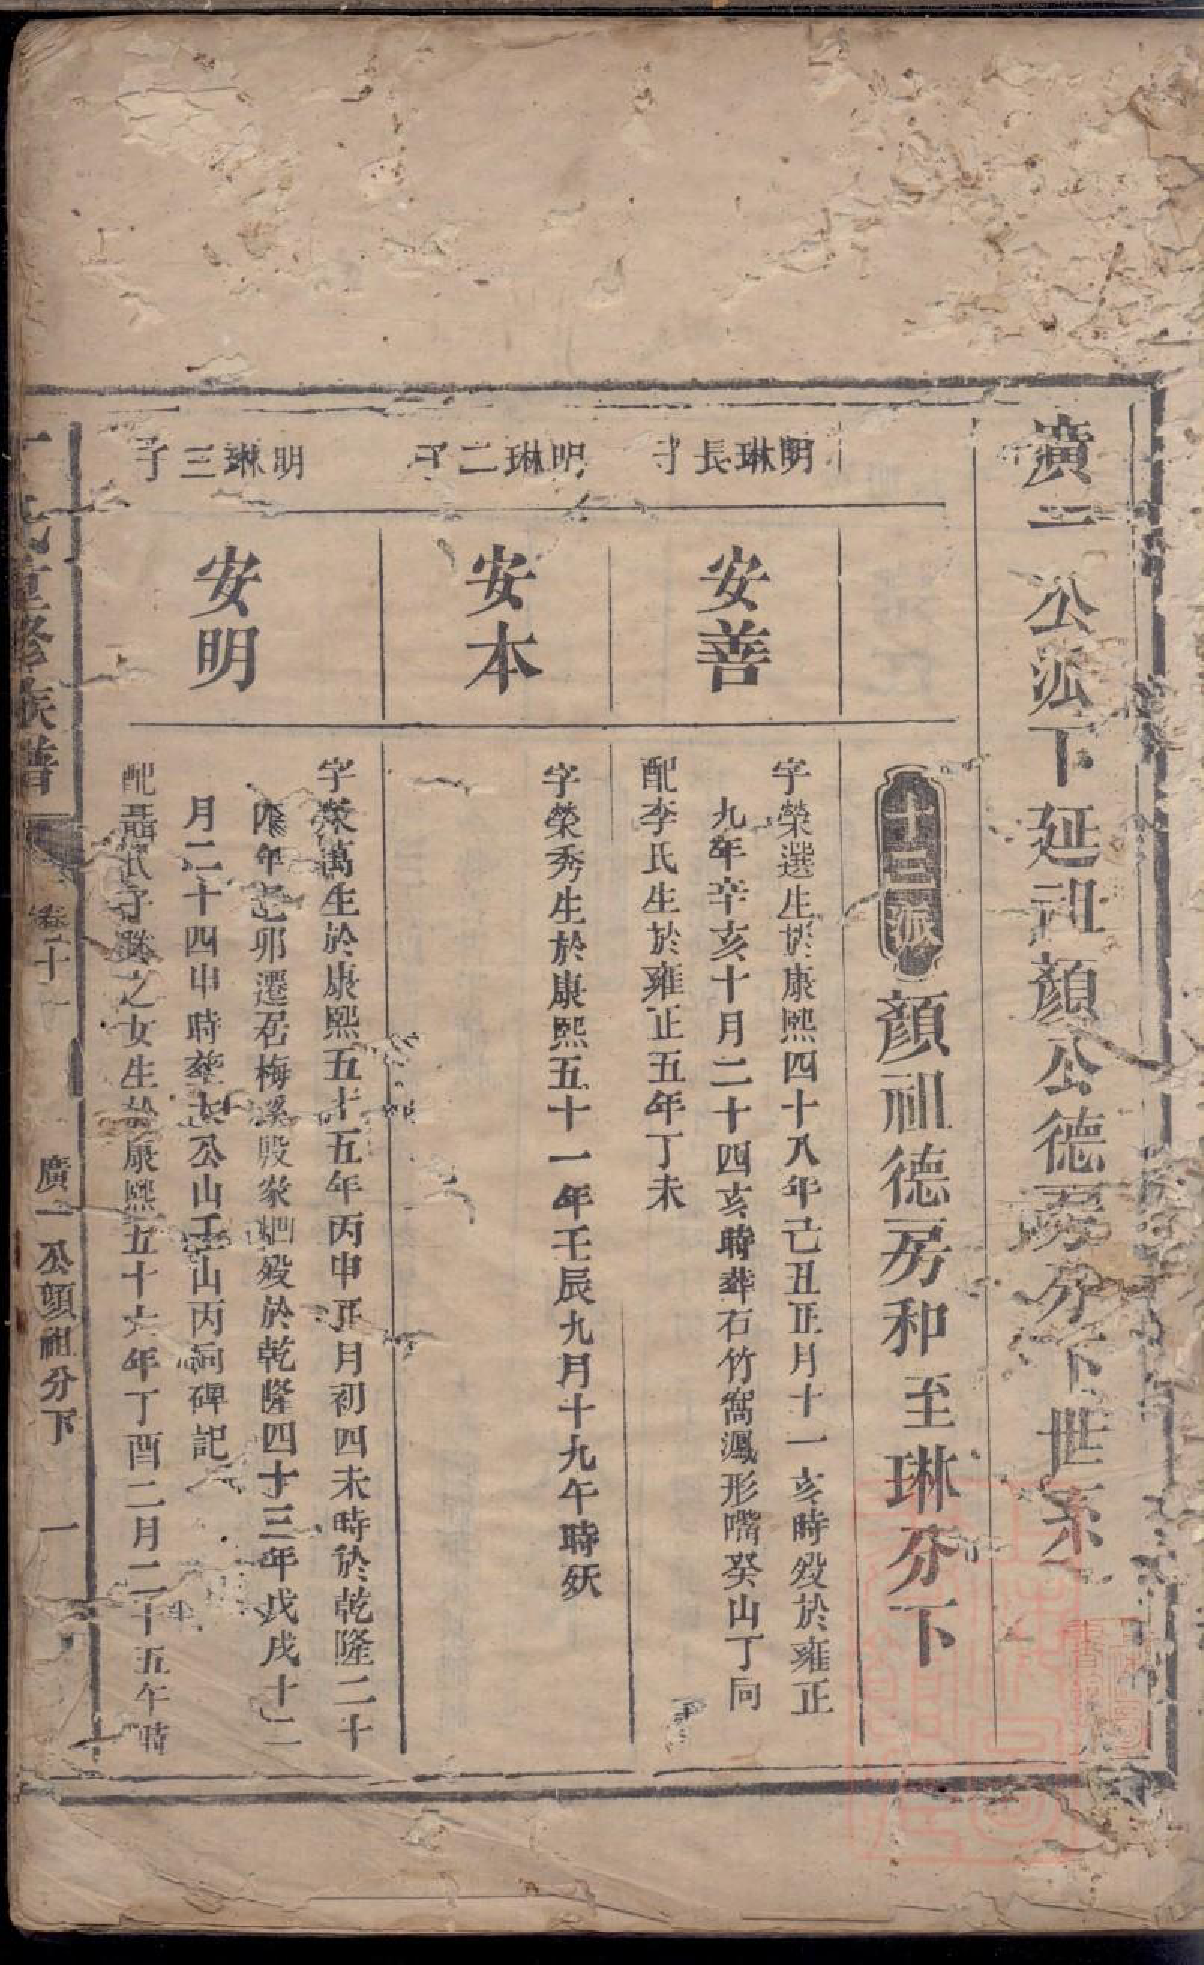 廣一公派下延祖顏公德房分下世系
十三派
顏祖德房和至琳分下
明琳長子
安善
字榮選生於康熙四十八年己丑正月十一亥時歿於雍正
九年辛亥十月二十四亥時葬石竹窩鳳形嘴癸山丁向
配李氏生於雍正五年丁未
明琳二子
安本
字榮秀生於康熙五十一年壬辰九月十九午時殀
明琳三子
安明
字榮萬生於康熙五十五年丙申正月初四未時於乾隆二十
四年己卯遷居梅溪殷家歿於乾隆四十三年戊戌十二
月二十四申時葬公山壬山丙向碑記
配聶氏子之女生於康熙五十六年丁酉二月二十五午時
氏重修族譜
卷二十
廣一公顏祖分下
一